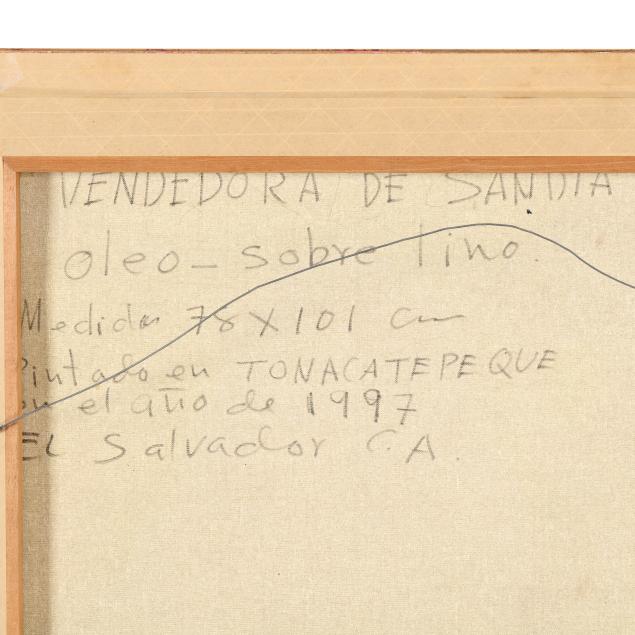 VENDEDORA DE SANDIA
oleo - sobre lino.
Medida 78 X 101 Cm
Pintado en TONACATEPEQUE
en el año de 1997
EL Salvador C.A.